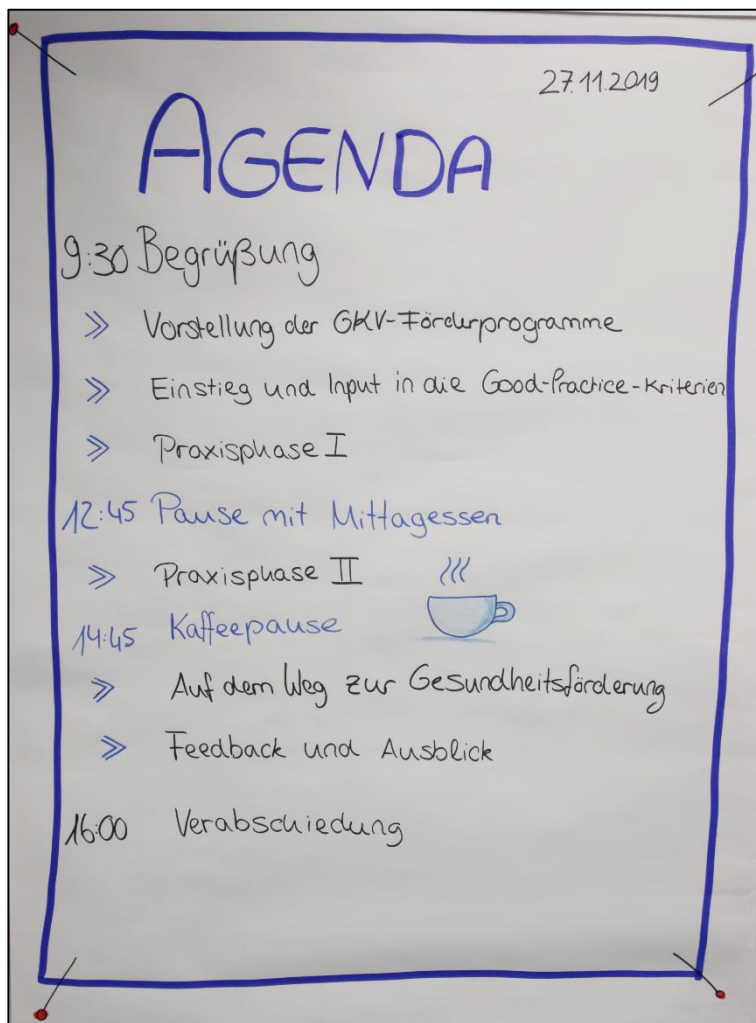 27.11.2019
AGENDA
9:30 Begrüßung
» Vorstellung der GKV-Förderprogramme
» Einstieg und Input in die Good-Practice-Kriterien
» Praxisphase I
12:45 Pause mit Mittagessen
» Praxisphase II
14:45 Kaffeepause
» Auf dem Weg zur Gesundheitsförderung
» Feedback und Ausblick
16:00 Verabschiedung